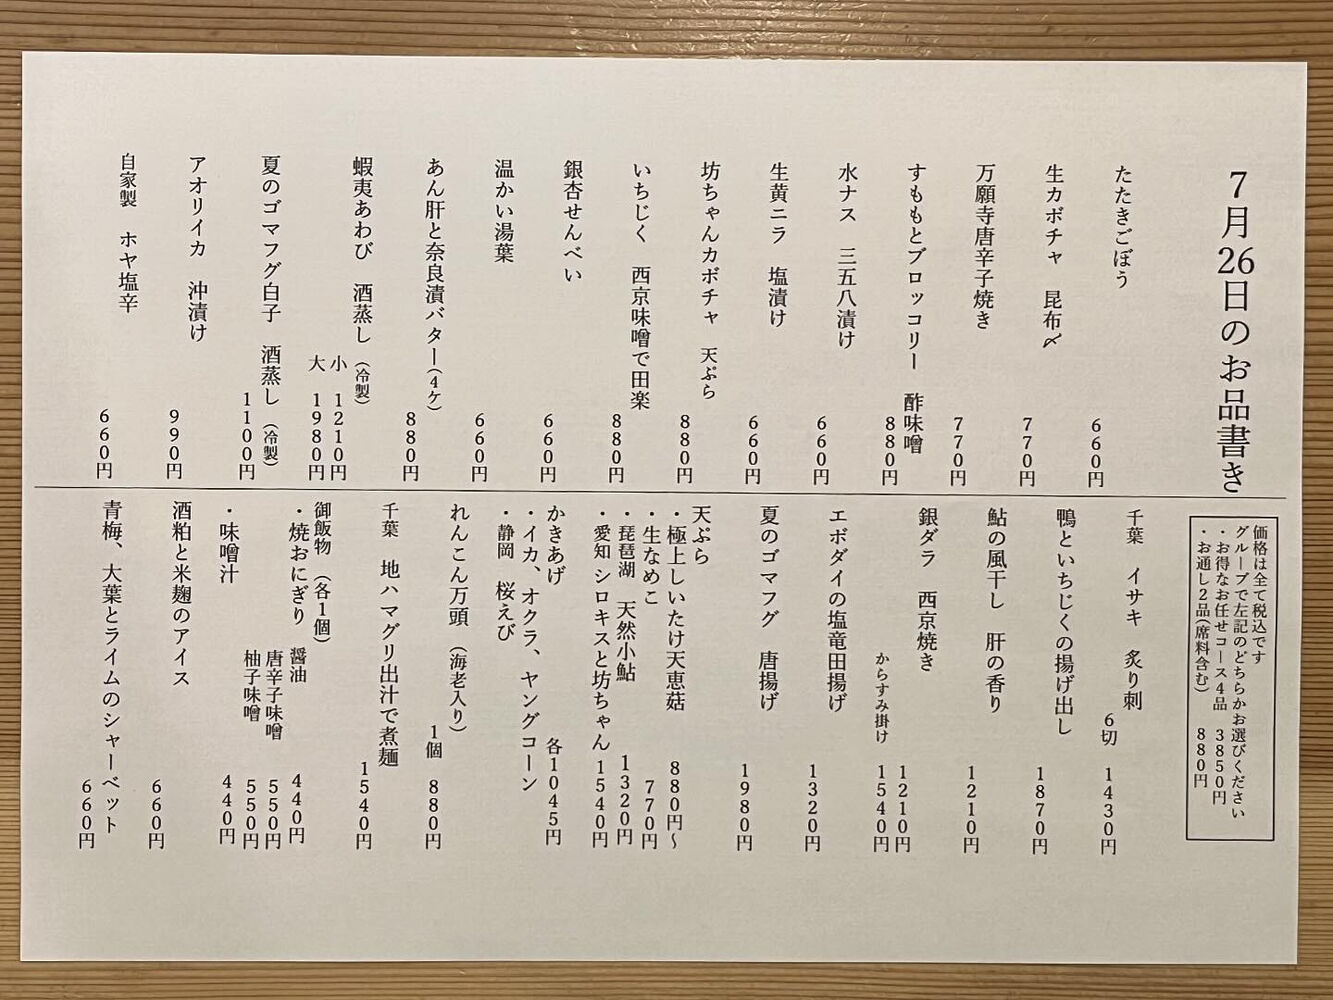 7月26日のお品書き
たたきごぼう
660円
生カボチャ 昆布〆
770円
万願寺唐辛子焼き
770円
すももとブロッコリー 酢味噌
880円
水ナス 三五八漬け
660円
生黄ニラ 塩漬け
660円
坊ちゃんカボチャ 天ぷら
880円
いちじく 西京味噌で田楽
880円
銀杏せんべい
660円
温かい湯葉
660円
あん肝と奈良漬バター(4ケ)
880円
蝦夷あわび 酒蒸し (冷製)
小 1210円
大 1980円
夏のゴマフグ白子 酒蒸し (冷製)
1100円
アオリイカ 沖漬け
990円
自家製 ホヤ塩辛
660円
価格は全て税込です
グループで左記のどちらかお選びください
・お得なお任せコース4品 3850円
・お通し2品(席料含む) 880円
千葉 イサキ 炙り刺
6切 1430円
鴨といちじくの揚げ出し
1870円
鮎の風干し 肝の香り
1210円
銀ダラ 西京焼き
1210円
からすみ掛け 1540円
エボダイの塩竜田揚げ
1320円
夏のゴマフグ 唐揚げ
1980円
天ぷら
・極上しいたけ天恵菇 880円~
・生なめこ 770円
・琵琶湖 天然小鮎 1320円
・愛知 シロキスと坊ちゃん 1540円
かきあげ 各1045円
・イカ、オクラ、ヤングコーン
・静岡 桜えび
れんこん万頭 (海老入り)
1個 880円
千葉 地ハマグリ出汁で煮麺
1540円
御飯物 (各1個)
・焼おにぎり 醤油 440円
唐辛子味噌 550円
柚子味噌 550円
・味噌汁 440円
酒粕と米麹のアイス
660円
青梅、大葉とライムのシャーベット
660円